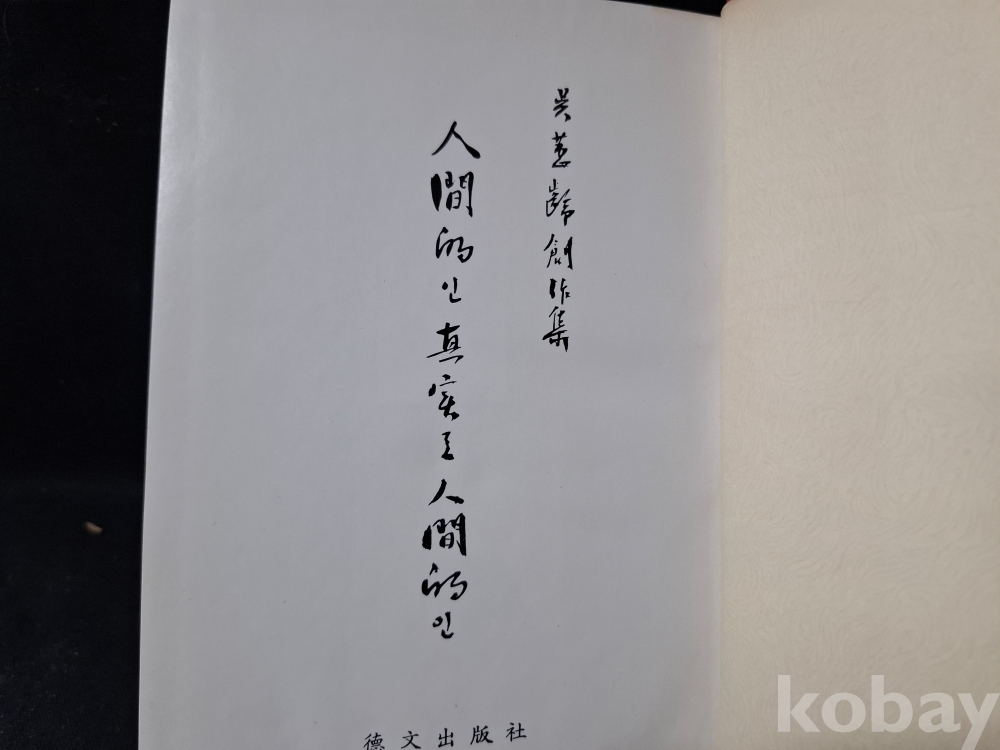 吳蕙齡創作集
人間的인 真實로 人間的인
德文出版社
kobay